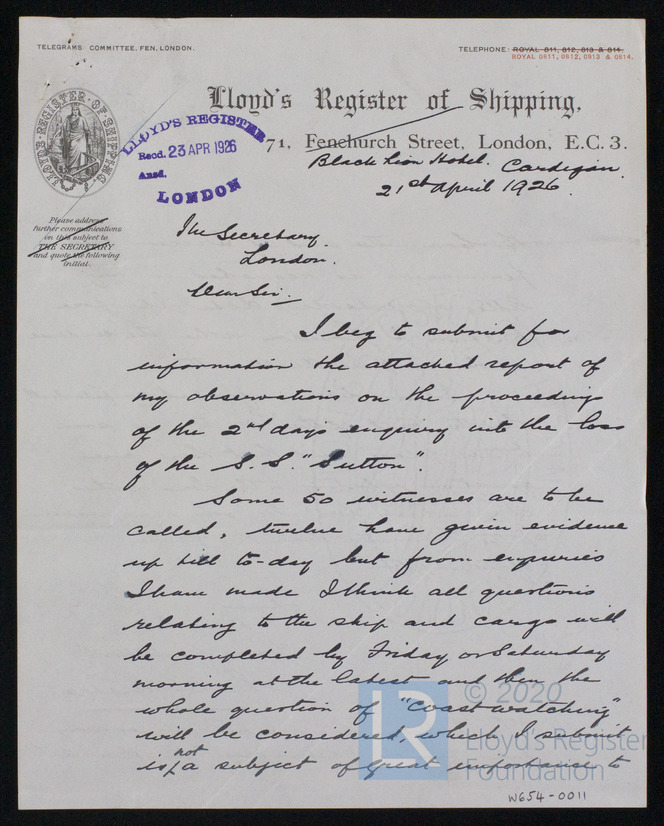 TELEGRAMS COMMITTEE, FEN, LONDON.
TELEPHONE: ROYAL 811, 812, 813 & 814.
ROYAL 0811, 0812, 0813 & 0814.
Lloyd's Register of Shipping,
71, Fenchurch Street, London, E.C.3.
LLOYD'S REGISTER OF SHIPPING
LLOYD'S REGISTER
Recd. 23 APR 1926
Ansd.
LONDON
Black Lion Hotel. Cardigan.
21st April 1926.
Please address
further communications
on this subject to
THE SECRETARY
and quote the following
initial.
The Secretary.
London.
Dear Sir,
I beg to submit for
information the attached report of
my observations on the proceedings
of the 2nd days enquiry into the loss
of the S.S. "Sutton".
Some 50 witnesses are to be
called, twelve have given evidence
up till to-day but from enquiries
I have made I think all questions
relating to the ship and cargo will
be completed by Friday or Saturday
morning at the latest and then the
whole question of "Coast watching"
will be considered, which I submit
is not a subject of great importance to
© 2020
LR
Lloyd's Register
Foundation
W654-0011